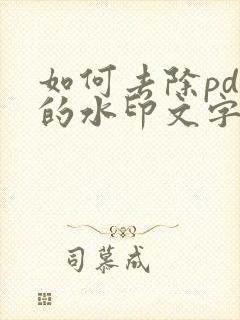 如何去除pd
的水印文字
司慕成